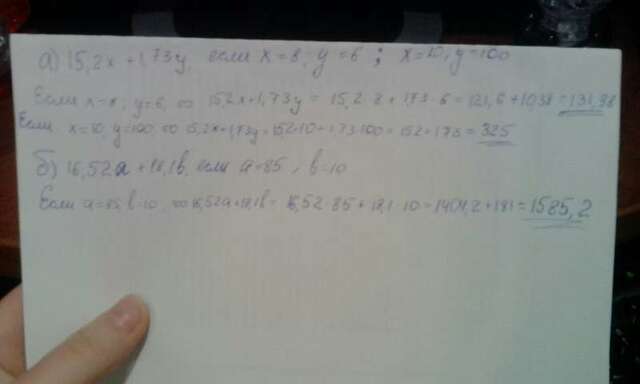 а) 15,2x + 1,73y, если x = 8, y = 6 ; x = 10, y = 100
Если x = 8, y = 6, то 15,2x + 1,73y = 15,2 · 8 + 1,73 · 6 = 121,6 + 10,38 = 131,98
Если x = 10, y = 100, то 15,2x + 1,73y = 15,2 · 10 + 1,73 · 100 = 152 + 173 = 325
б) 16,52a + 18,1b, если a = 85, b = 10
Если a = 85, b = 10, то 16,52a + 18,1b = 16,52 · 85 + 18,1 · 10 = 1404,2 + 181 = 1585,2